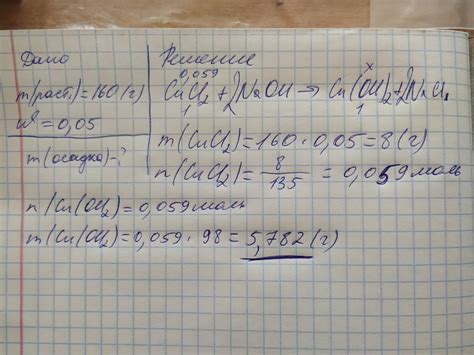 Дано
Решение
m(раст.)=160(г)
W=0,05
m(осадка)-?
0,059 x
CuCl2+2NaOH→Cu(OH)2+2NaCl
1 1
m(CuCl2)=160·0,05=8(г)
n(CuCl2)=8/135=0,059моль
n(Cu(OH2)=0,059моль
m(Cu(OH2)=0,059·98=5,782(г)